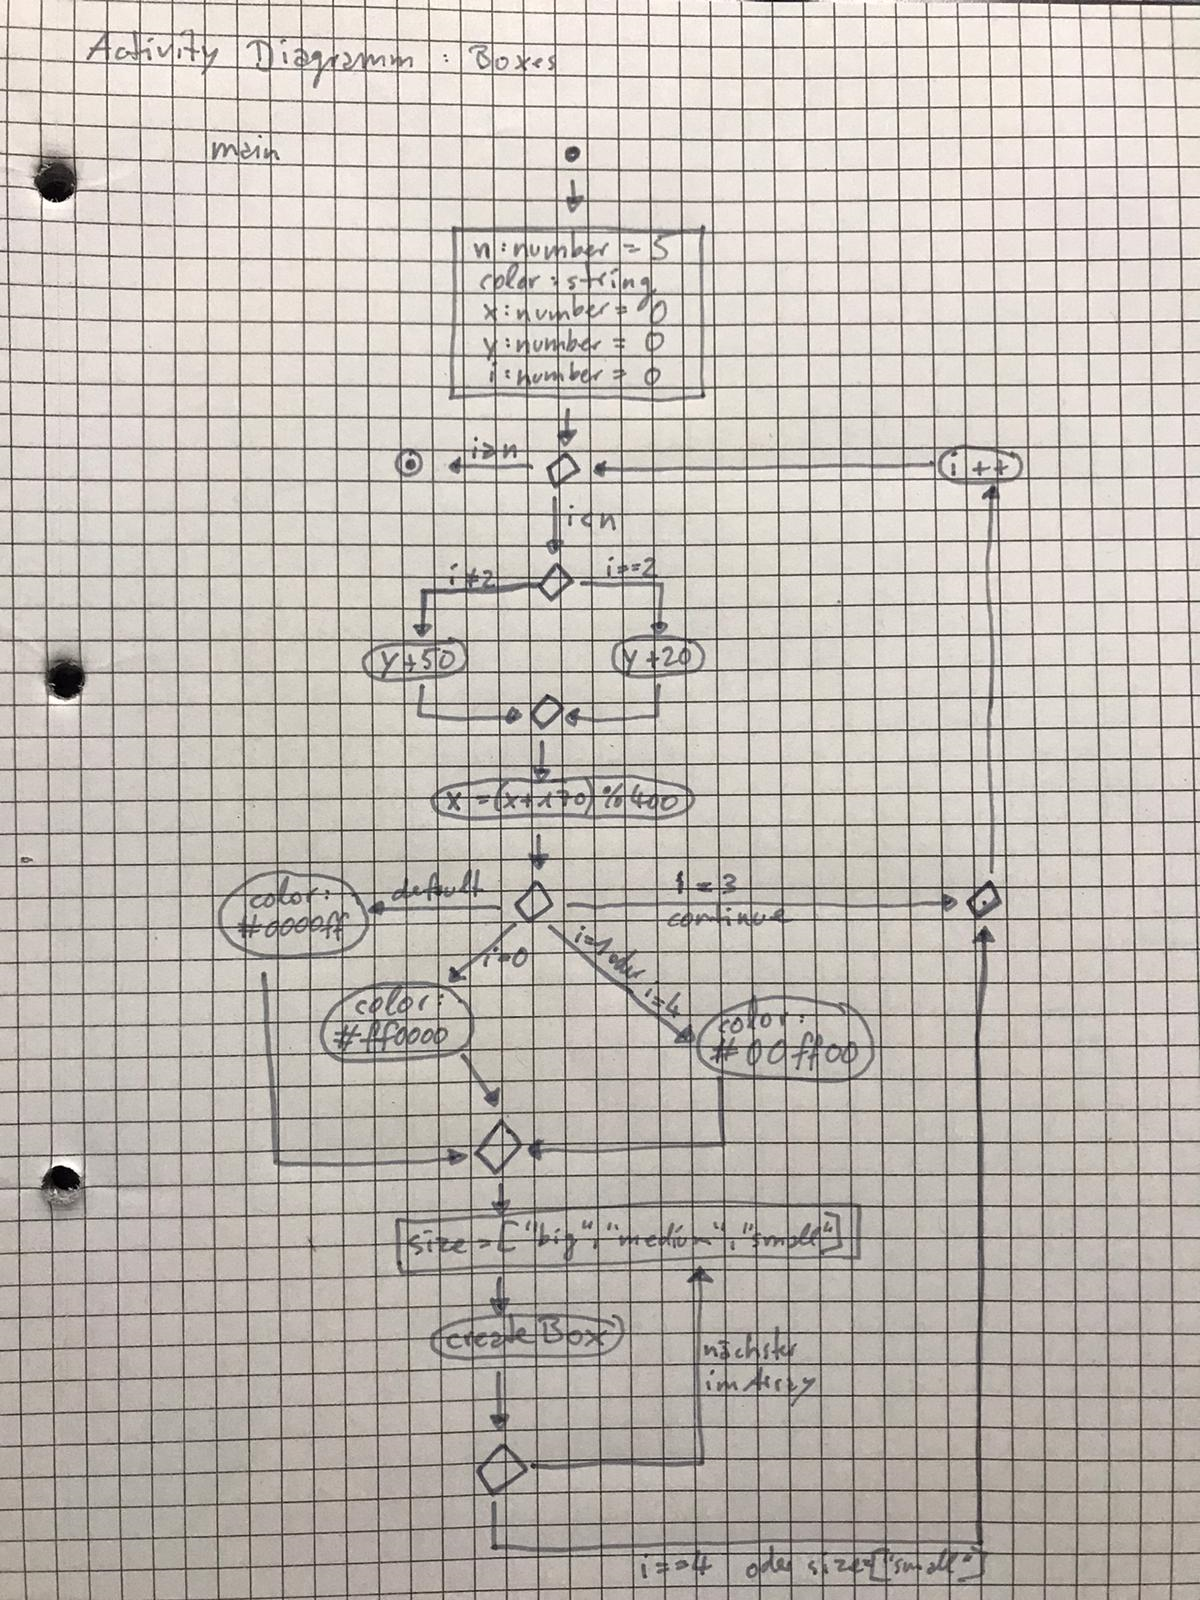 Activity Diagramm : Boxes
main
n : number = 5
color : string
x : number = 0
y : number = 0
i : number = 0
i ≥ n
i ++
i < n
i ≠ 2
i == 2
y + 50
y + 20
x = (x + 170) % 400
color:
#0000ff
default
i = 3
continue
i=0
i=1 oder i=4
color:
#ff0000
color:
#00ff00
size = ["big", "medium", "small"]
createBox
nächster
im Array
i == 4 oder size = ["small"]